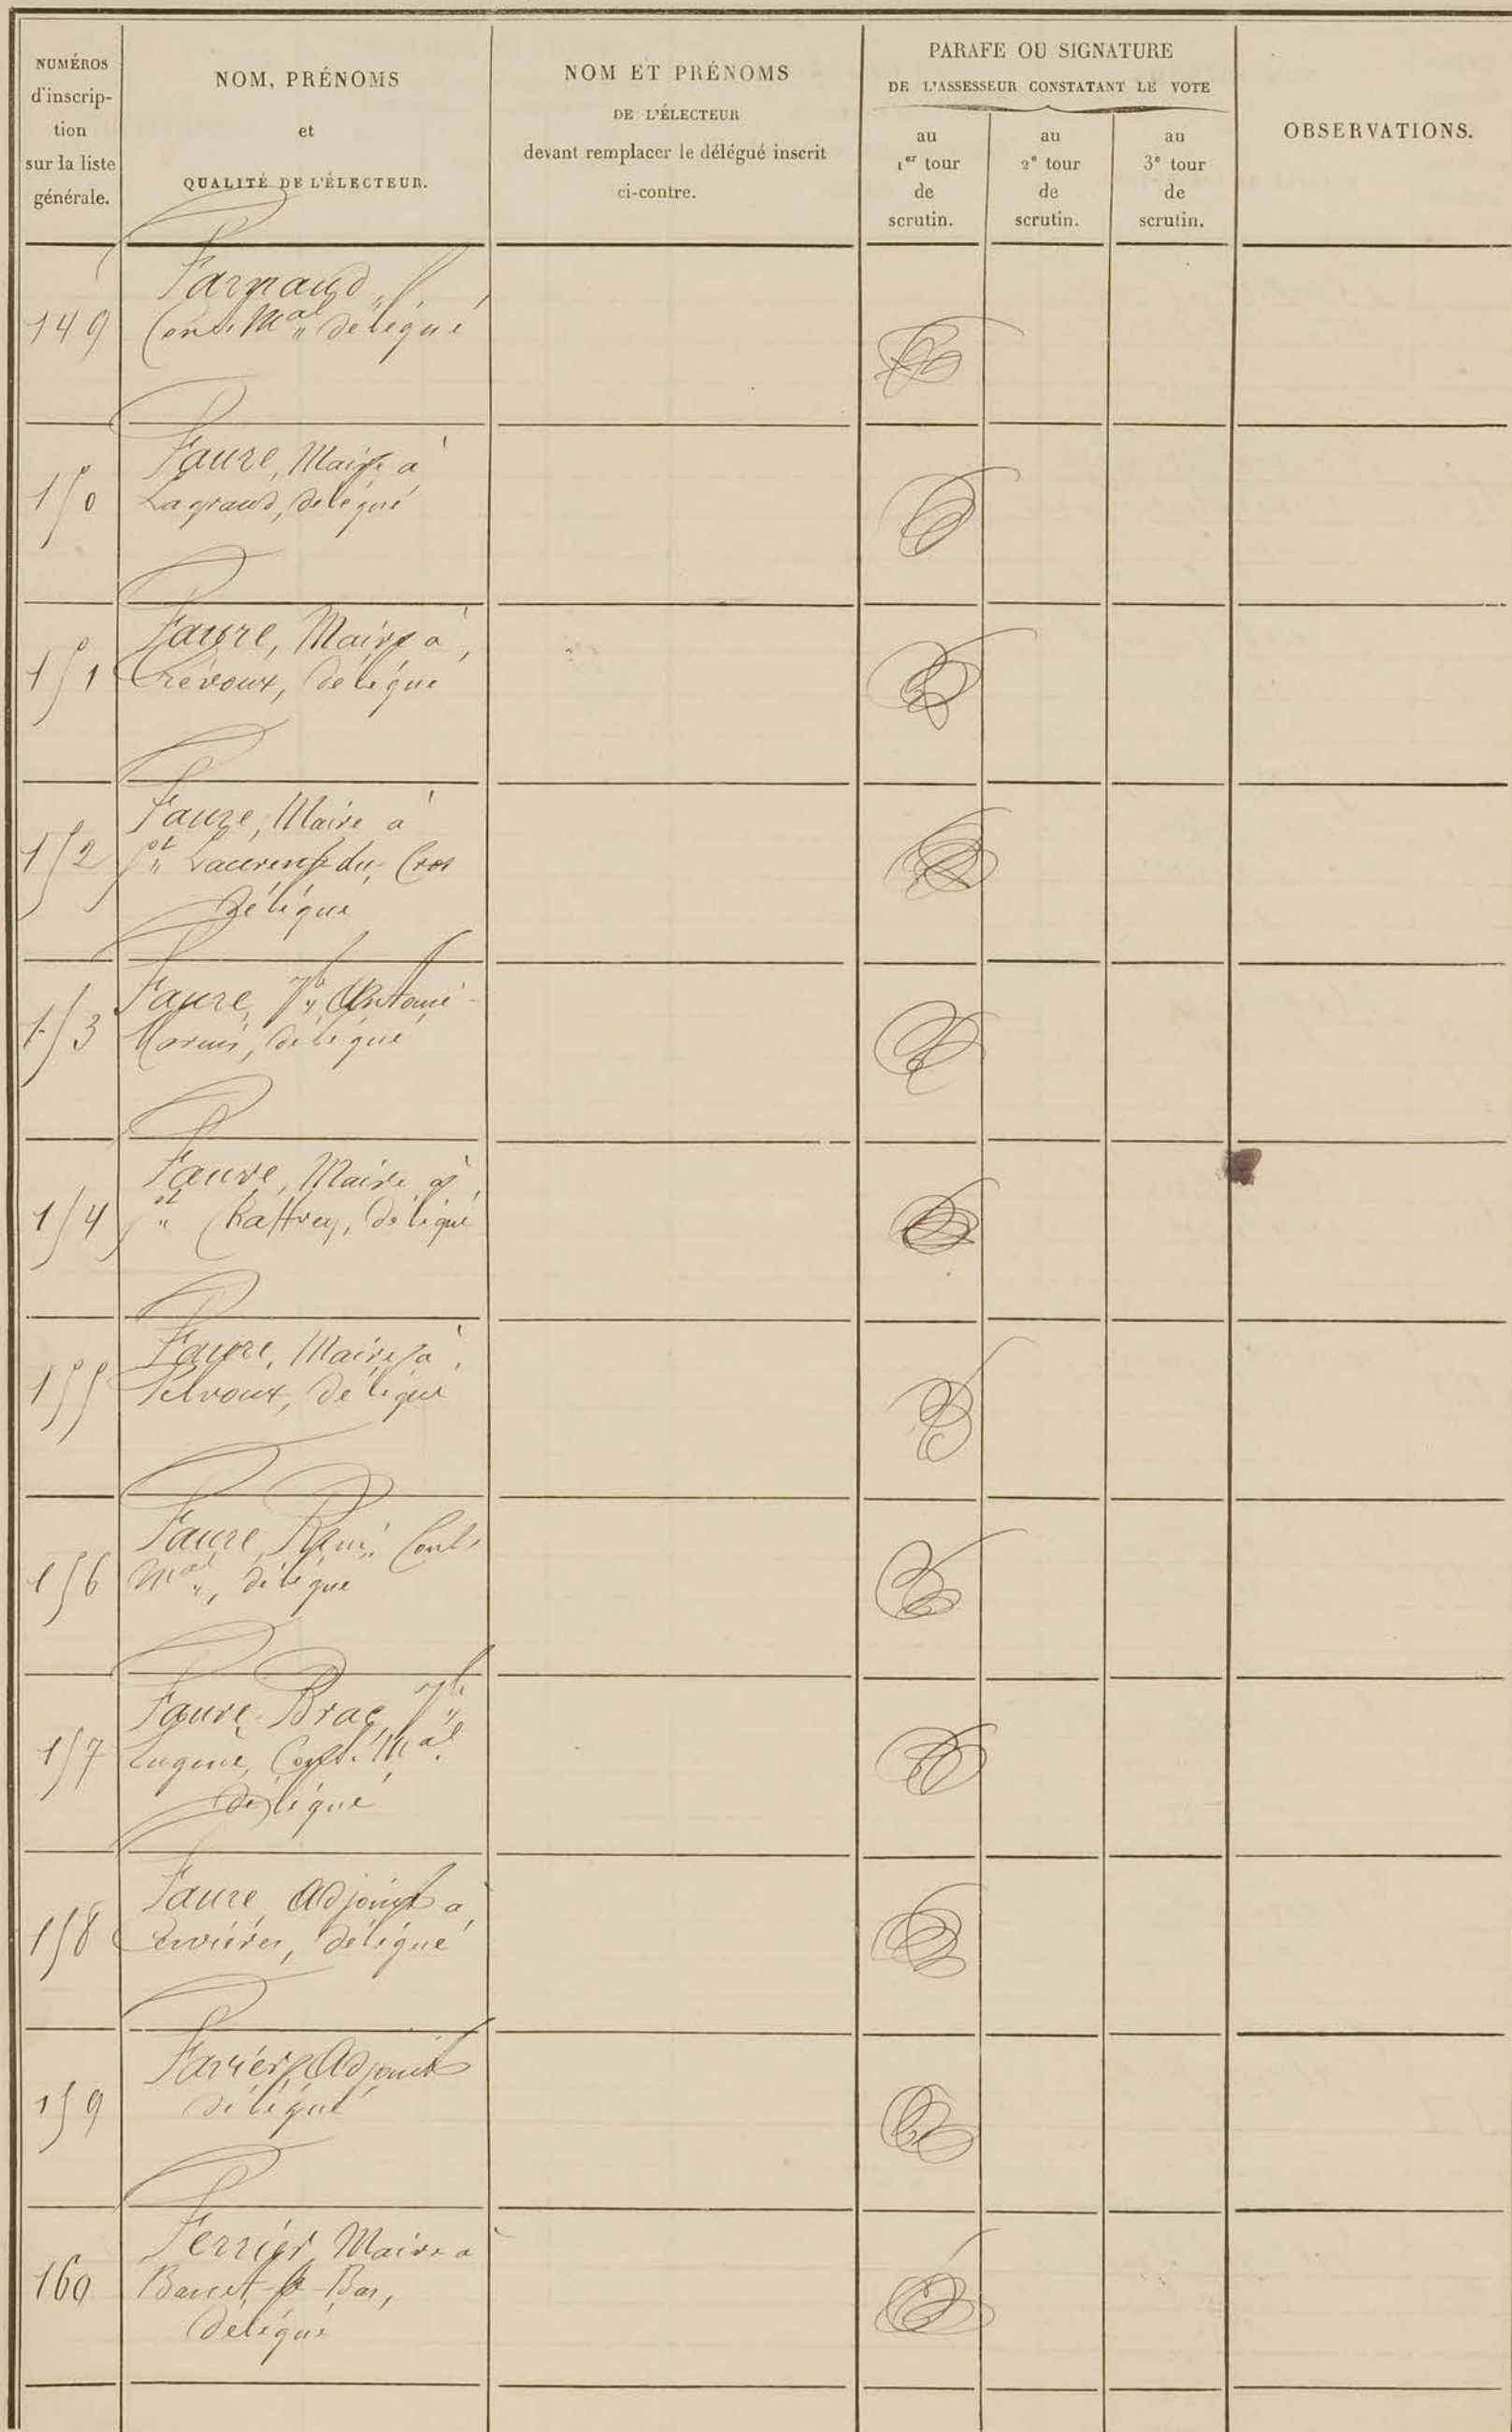 NUMÉROS
d'inscrip-
tion
sur la liste
générale.
NOM, PRÉNOMS
et
QUALITÉ DE L'ÉLECTEUR.
NOM ET PRÉNOMS
DE L'ÉLECTEUR
devant remplacer le délégué inscrit
ci-contre.
PARAFE OU SIGNATURE
DE L'ASSESSEUR CONSTATANT LE VOTE
au
1er tour
de
scrutin.
au
2e tour
de
scrutin.
au
3e tour
de
scrutin.
OBSERVATIONS.
149
Farnaud,
Cons. Mal délégué
150
Faure, Maire à
Lagrand, délégué
151
Faure, Maire à
Crévoux, délégué
152
Faure, Maire à
St Laurent du Cros
délégué
153
Faure, Jh Antoine
Marius, délégué
154
Faure, Maire à
St Chaffrey, délégué
155
Faure, Maire à
Pelvoux, délégué
156
Faure, Rémi, Cons.
Mal, délégué
157
Faure-Brac Jh
Eugène, Cons. Mal
délégué
158
Faure, adjoint à
Cervières, délégué
159
Favier, Adjoint
délégué
160
Ferrier, Maire à
Barret-le-Bas,
délégué